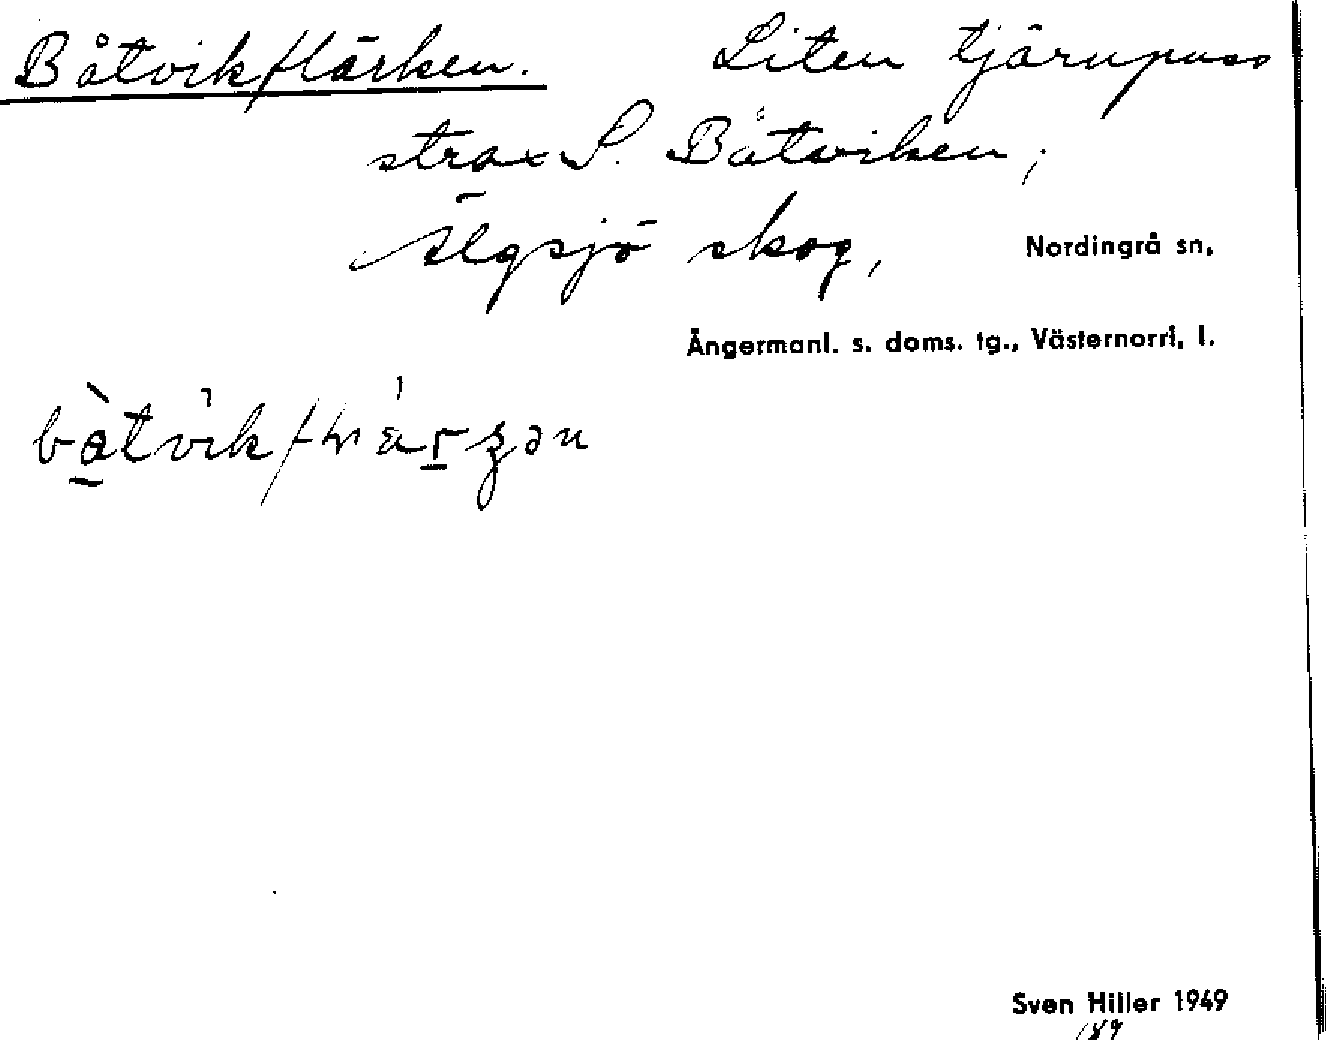 Båtvikflärken. Liten tjärnpuss
strax S. Båtviken,
Älgsjö skog, Nordingrå sn,
Ångermanl. s. doms. tg., Västernorrl. l.
Sven Hiller 1949
189